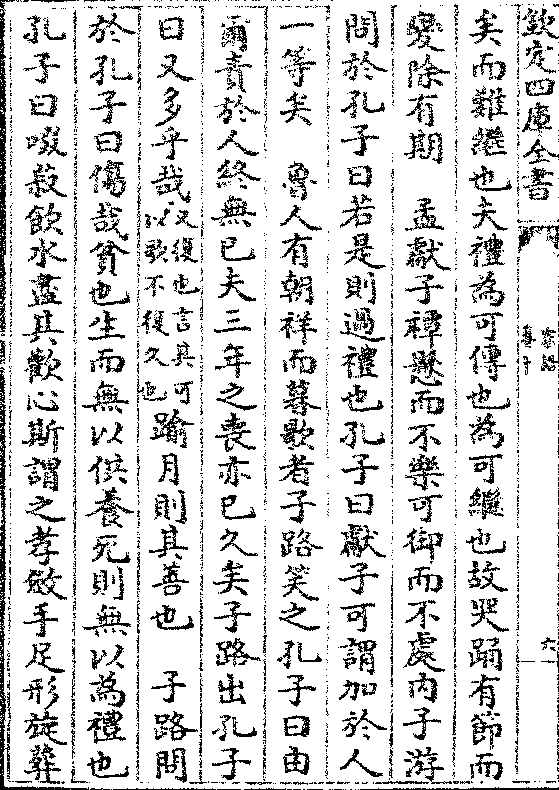 欽定四庫全書
矣而難繼也夫禮為可傳也為可繼也故哭踊有節而
變除有期　孟獻子禫懸而不樂可御而不處内子游
問於孔子曰若是則過禮也孔子曰獻子可謂加於人
一等矣　魯人有朝祥而暮歌者子路笑之孔子曰由
爾責於人終無已夫三年之喪亦已久矣子路出孔子
曰又多乎哉又復也言其可以歌不復久也踰月則其善也　子路問
於孔子曰傷哉貧也生而無以供養死則無以為禮也
孔子曰啜菽飲水盡其歡心斯謂之孝斂手足形旋葬